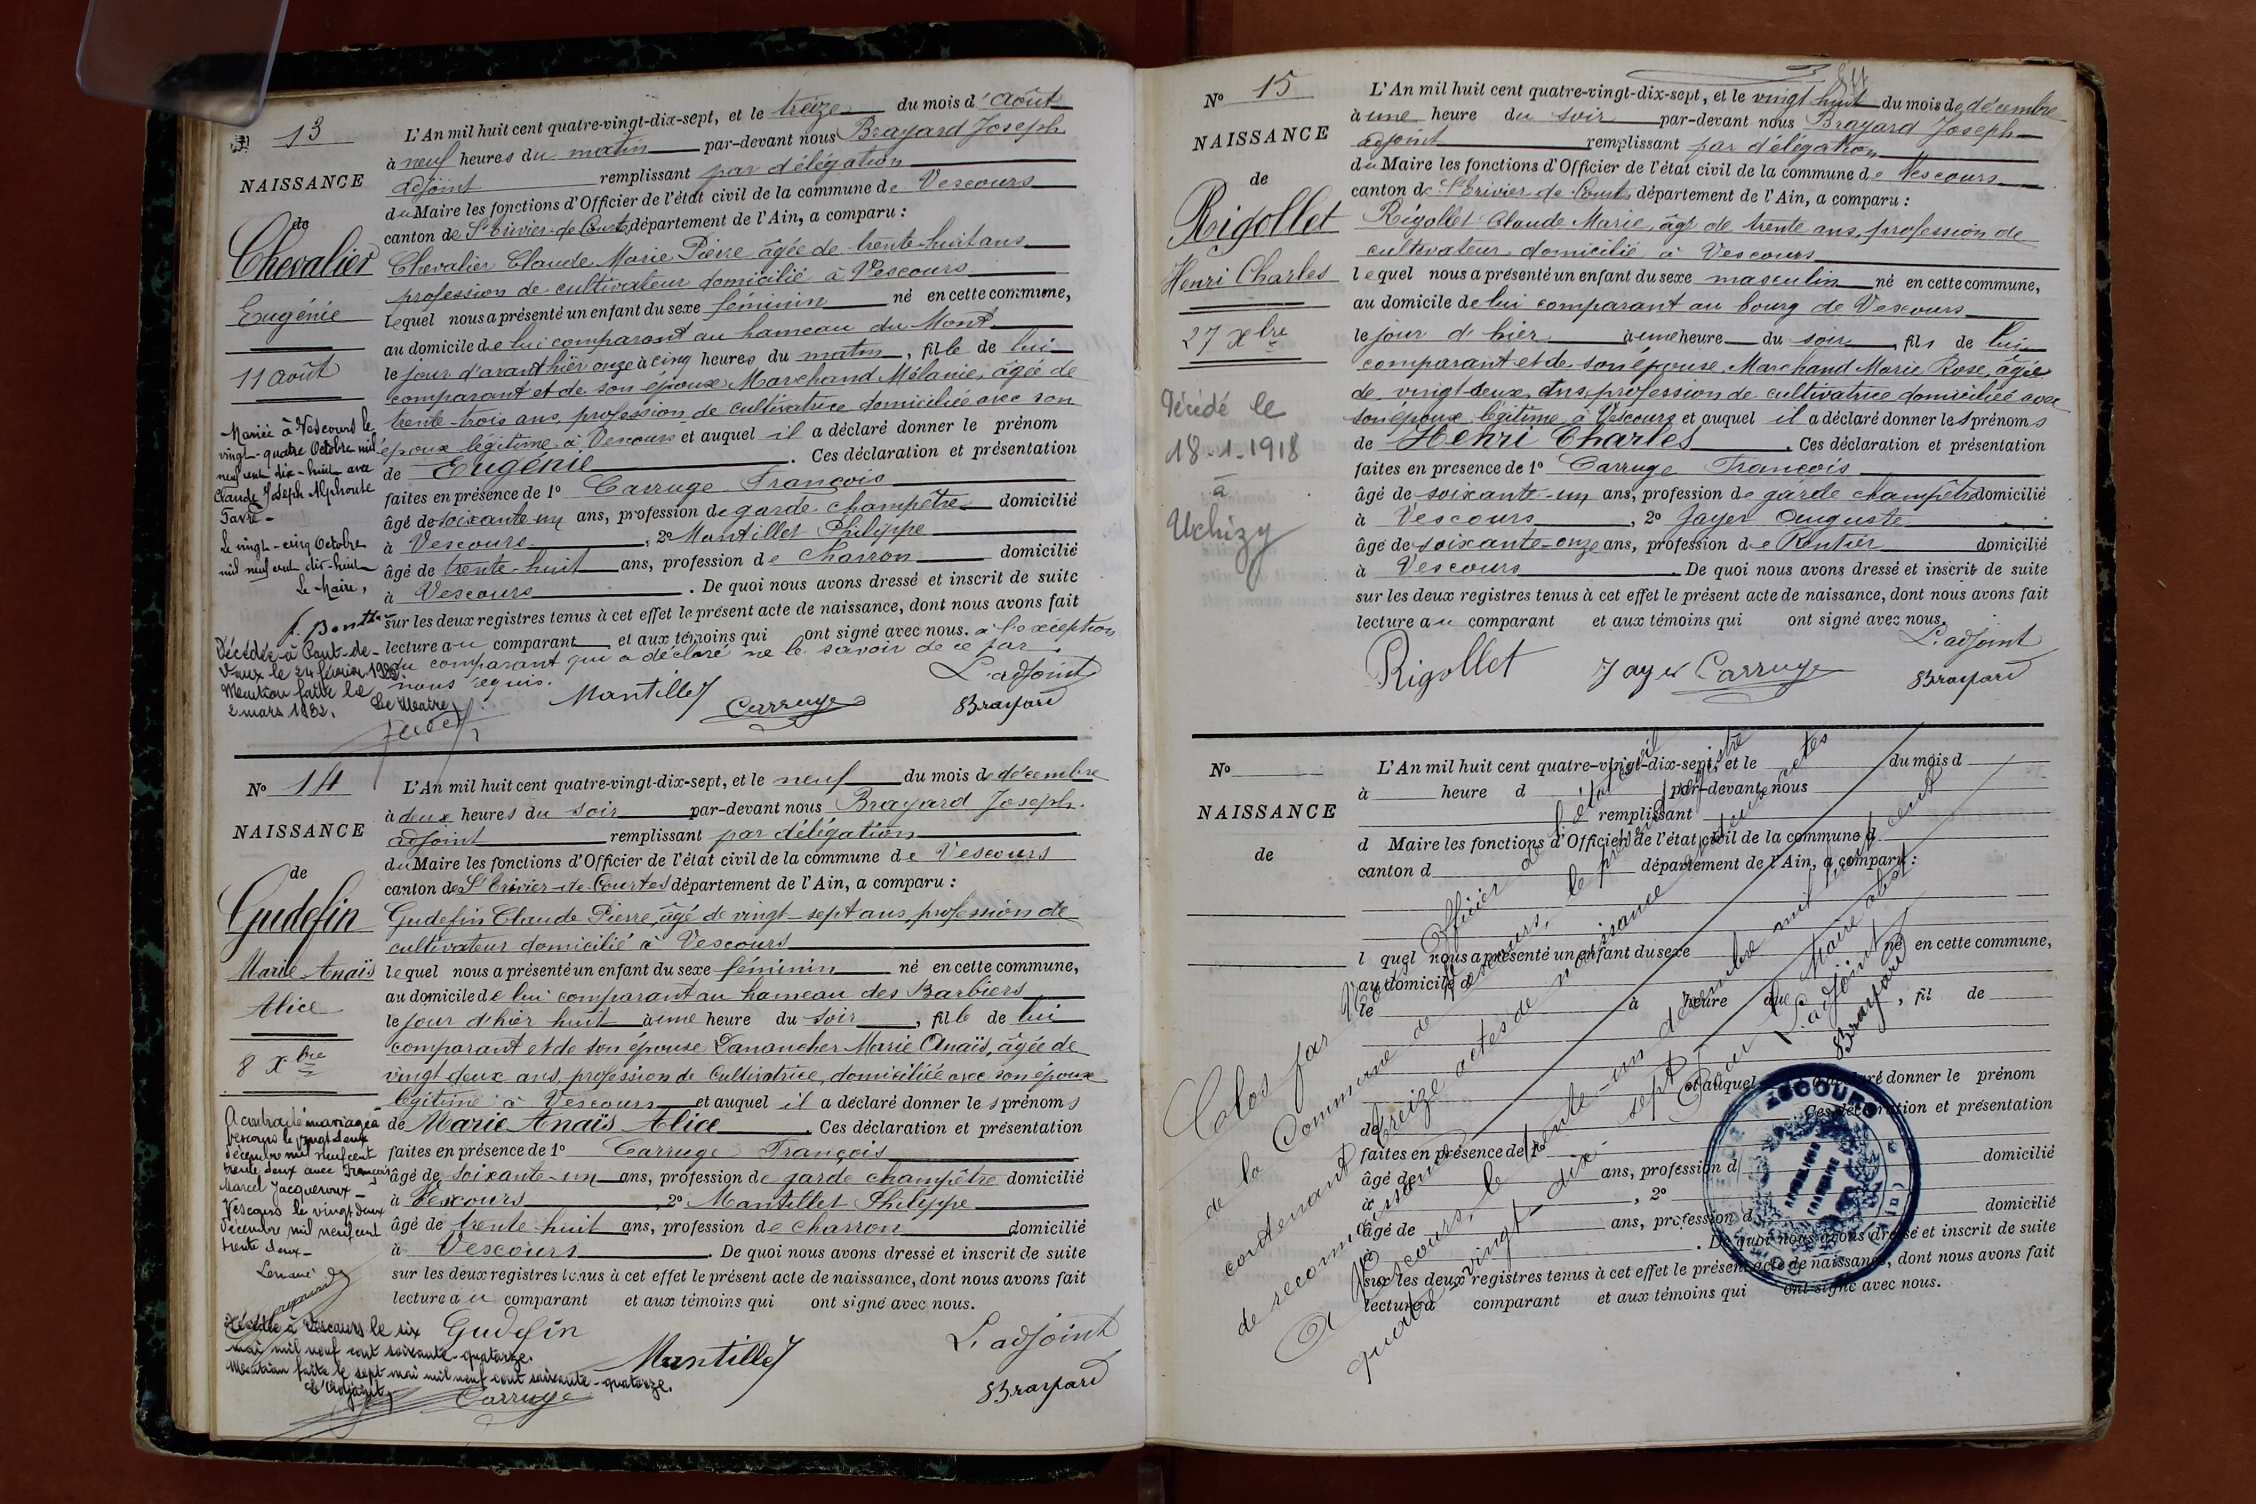 13
NAISSANCE
de
Chevalier
Eugénie
11 août
Mariée à Vescours le
vingt-quatre Octobre mil
neuf cent dix-huit avec
Claude Joseph Alphonse
Favre-
Le vingt-cinq Octobre
mil neuf cent dix-huit
Le Maire,
Décédée à Pont-de-
Vaux le 24 février
Mention faite le
2 mars
Le Maire
L'An mil huit cent quatre-vingt-dix-sept, et le treize du mois d'août
à neuf heures du matin par-devant nous Brayard Joseph
adjoint remplissant par délégation
du Maire les fonctions d'Officier de l'état civil de la commune de Vescours
canton de St Trivier-de-Courtes département de l'Ain, a comparu :
Chevalier Claude Marie Pierre âgée de trente-huit ans
profession de cultivateur domicilié à Vescours
lequel nous a présenté un enfant du sexe féminin né en cette commune,
au domicile de lui comparant au hameau du Mont
le jour d'avant hier onze à cinq heures du matin, fille de lui
comparant et de son épouse Marchand Mélanie, âgée de
trente-trois ans, profession de cultivatrice domiciliée avec son
époux légitime à Vescours et auquel il a déclaré donner le prénom
de Eugénie. Ces déclaration et présentation
faites en présence de 1° Carruge François
âgé de soixante-un ans, profession de garde champêtre domicilié
à Vescours, 2° Mantillet Philippe
âgé de trente-huit ans, profession de charron domicilié
à Vescours. De quoi nous avons dressé et inscrit de suite
sur les deux registres tenus à cet effet le présent acte de naissance, dont nous avons fait
lecture au comparant et aux témoins qui ont signé avec nous. à l'exception
du comparant qui a déclaré ne le savoir de ce par
nous requis.
Mantillet Carruge L'adjoint
Brayard
No 14
NAISSANCE
de
Gudefin
Marie Anaïs
Alice
8 Xbre
A contracté mariage à
Vescours le vingt deux
décembre mil neuf cent
trente deux avec François
Marcel Jacqueroux-
Vescours le vingt deux
décembre mil neuf cent
trente deux-
Décédée à Vescours le six
mai mil neuf cent soixante-quatorze.
Mention faite le sept mai mil neuf cent soixante-quatorze.
L'Adjoint,
L'An mil huit cent quatre-vingt-dix-sept, et le neuf du mois de décembre
à deux heures du soir par-devant nous Brayard Joseph
adjoint remplissant par délégation
du Maire les fonctions d'Officier de l'état civil de la commune de Vescours
canton de St Trivier-de-Courtes département de l'Ain, a comparu :
Gudefin Claude Pierre, âgé de vingt-sept ans, profession de
cultivateur domicilié à Vescours
lequel nous a présenté un enfant du sexe féminin né en cette commune,
au domicile de lui comparant au hameau des Barbiers
le jour d'hier huit à une heure du soir, fille de lui
comparant et de son épouse Danancher Marie Anaïs, âgée de
vingt deux ans, profession de Cultivatrice, domiciliée avec son époux
légitime à Vescours et auquel il a déclaré donner les prénoms
de Marie Anaïs Alice. Ces déclaration et présentation
faites en présence de 1° Carruge François
âgé de soixante-un ans, profession de garde champêtre domicilié
à Vescours, 2° Mantillet Philippe
âgé de trente-huit ans, profession de charron domicilié
à Vescours. De quoi nous avons dressé et inscrit de suite
sur les deux registres tenus à cet effet le présent acte de naissance, dont nous avons fait
lecture au comparant et aux témoins qui ont signé avec nous.
Gudefin Mantillet L'adjoint
Carruge Brayard
No 15
NAISSANCE
de
Rigollet
Henri Charles
27 Xbre
Décédé le
18-1-1918
à
Uchizy
L'An mil huit cent quatre-vingt-dix-sept, et le vingt huit du mois de décembre
à une heure du soir par-devant nous Brayard Joseph
adjoint remplissant par délégation
du Maire les fonctions d'Officier de l'état civil de la commune de Vescours
canton de St Trivier-de-Courtes département de l'Ain, a comparu :
Rigollet Claude Marie, âgé de trente ans, profession de
cultivateur domicilié à Vescours
lequel nous a présenté un enfant du sexe masculin né en cette commune,
au domicile de lui comparant au bourg de Vescours
le jour d'hier à une heure du soir, fils de lui
comparant et de son épouse Marchand Marie Rose, âgée
de vingt-deux ans, profession de cultivatrice domiciliée avec
son époux légitime à Vescours et auquel il a déclaré donner les prénoms
de Henri Charles. Ces déclaration et présentation
faites en présence de 1° Carruge François
âgé de soixante-un ans, profession de garde champêtre domicilié
à Vescours, 2° Jayer Auguste
âgé de soixante-onze ans, profession de Rentier domicilié
à Vescours. De quoi nous avons dressé et inscrit de suite
sur les deux registres tenus à cet effet le présent acte de naissance, dont nous avons fait
lecture au comparant et aux témoins qui ont signé avec nous.
Rigollet Jayer Carruge L'adjoint
Brayard
No
NAISSANCE
de
L'An mil huit cent quatre-vingt-dix-sept, et le du mois d
à heure d par-devant nous
remplissant
d Maire les fonctions d'Officier de l'état civil de la commune d
canton d département de l'Ain, a comparu :
l quel nous a présenté un enfant du sexe né en cette commune,
au domicile d
le à heure d, fil de
et auquel a déclaré donner le prénom
de Ces déclaration et présentation
faites en présence de 1°
âgé de ans, profession d domicilié
à, 2°
âgé de ans, profession d domicilié
à. De quoi nous avons dressé et inscrit de suite
sur les deux registres tenus à cet effet le présent acte de naissance, dont nous avons fait
lecture a comparant et aux témoins qui ont signé avec nous.
Colos par Officier de l'état civil
de la Commune de Vescours, le présent registre
contenant treize actes de naissance et deux actes
de reconnaissance
A Vescours, le trente-un décembre mil huit cent
quatre vingt-dix-sept
Pour le Maire abst
L'adjoint
Brayard
VESCOURS
REPUBLIQUE
FRANCAISE
(Ain)